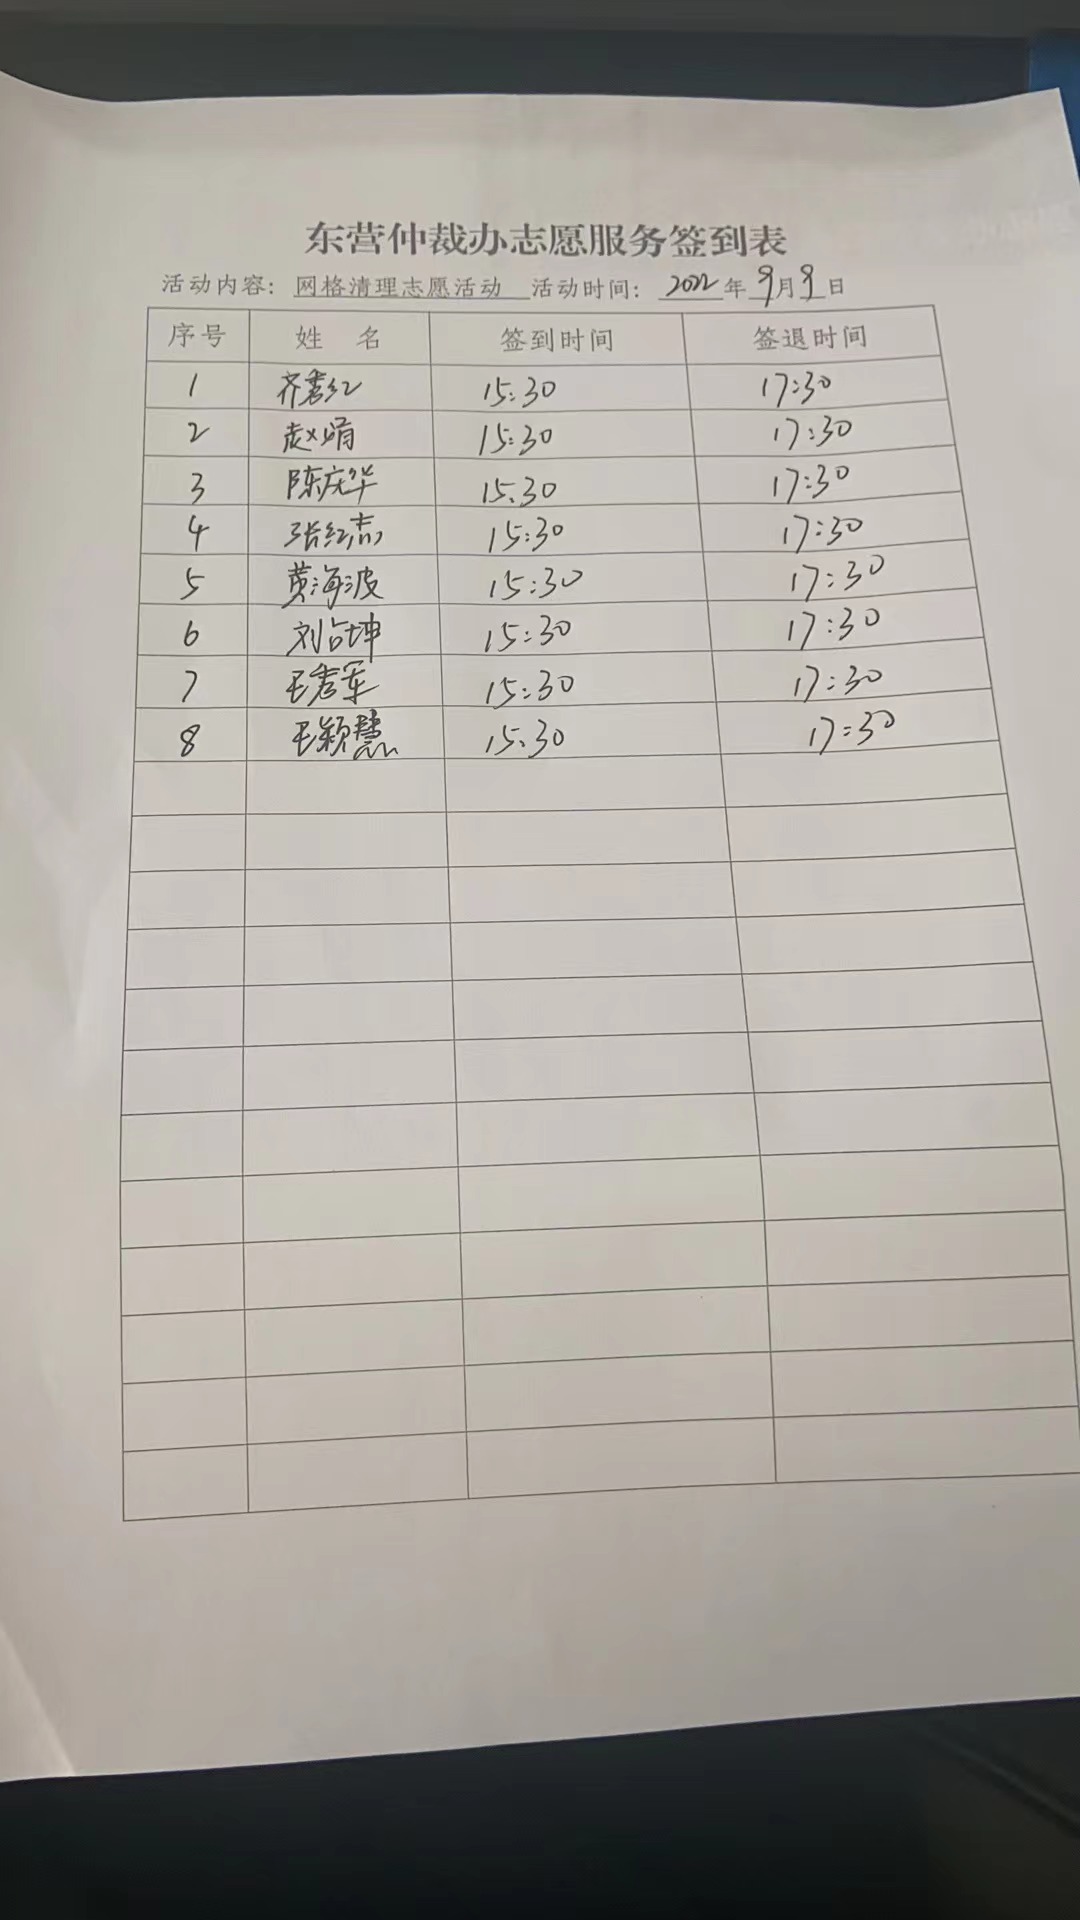 东营仲裁办志愿服务签到表
活动内容: 网格清理志愿活动 活动时间: 2022年9月9日
序号 姓 名 签到时间 签退时间
1 齐秀红 15:30 17:30
2 赵娟 15:30 17:30
3 陈庆华 15.30 17:30
4 张红志 15:30 17:30
5 黄海波 15:30 17:30
6 刘占坤 15:30 17:30
7 王秀军 15:30 17:30
8 王颖慧 15.30 17:30